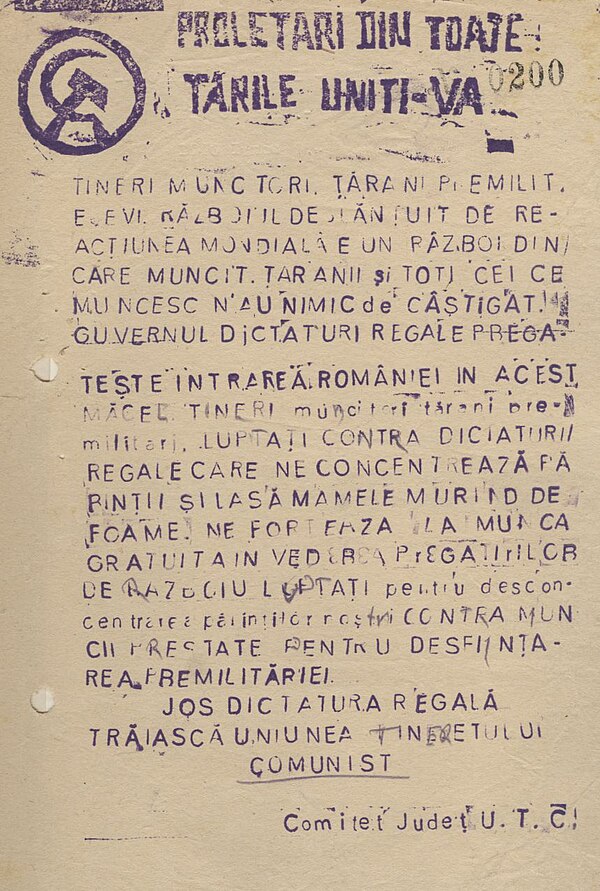 PROLETARI DIN TOATE
ȚĂRILE UNIȚI-VĂ
0200
TINERI MUNCTORI, ȚĂRANI PREMILIT.
ELEVI. RĂZBOIUL DESLĂNȚUIT DE RE-
ACȚIUNEA MONDIALĂ E UN RĂZBOI DIN
CARE MUNCIT. ȚARANII și TOȚI CEI CE
MUNCESC N'AU NIMIC de CÂȘTIGAT!
GUVERNUL DICTATURI REGALE PREGA-
TEȘTE INTRAREA ROMÂNIEI IN ACEST
MĂCEL. TINERI muncitori țărani pre-
militari, LUPTAȚI CONTRA DICTATURII
REGALE CARE NE CONCENTREAZĂ PĂ
RINȚII ȘI LASĂ MAMELE MURIND DE
FOAME. NE FORTEAZA LA MUNCA
GRATUITA IN VEDEREA PREGATIRILOR
DE RAZBOIU LUPTAȚI pentru descon-
centrarea părinților noștri CONTRA MUN
CII PRESTATE PENTRU DESFIINȚA-
REA PREMILITĂRIEI.
JOS DICTATURA REGALĂ
TRĂIASCĂ UNIUNEA TINERETULUI
COMUNIST
Comitet Județ U. T. C!